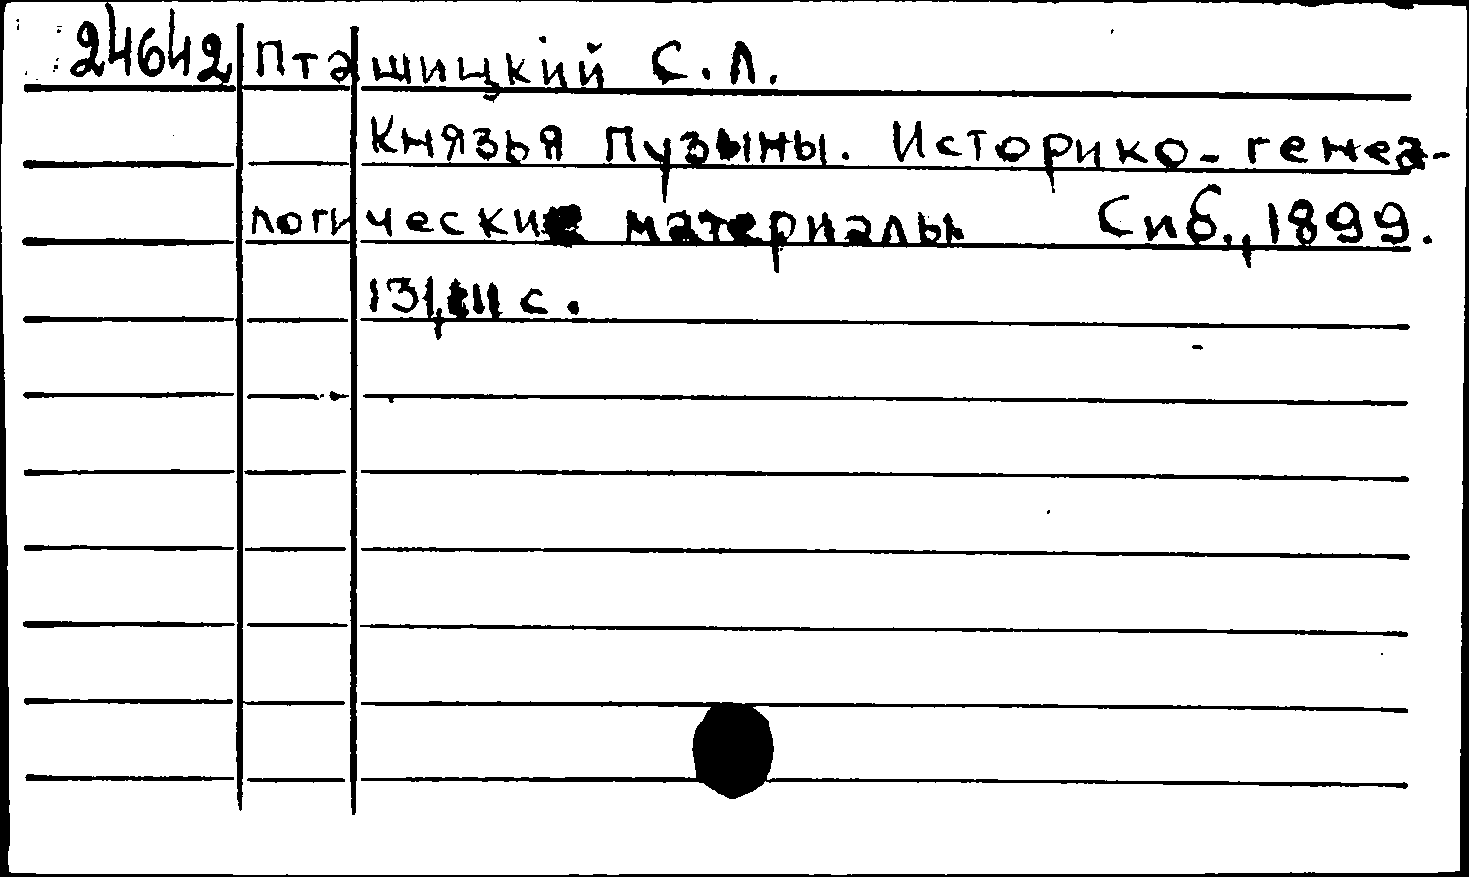 24642 Пташицкий С. Л.
Князья Пузыны. Историко-генеа-
логические материалы Спб., 1899.
131, III с.